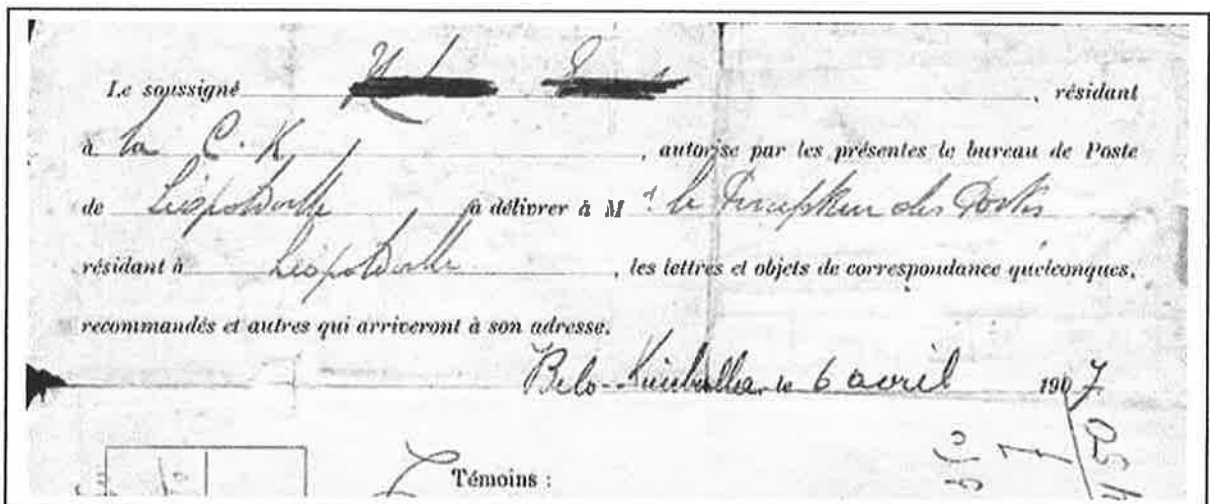 Le soussigné , résidant
à la C. K , autorise par les présentes le bureau de Poste
de Léopoldville à délivrer à Mr le Percepteur des Postes
résidant à Léopoldville , les lettres et objets de correspondance quelconques,
recommandés et autres qui arriveront à son adresse.
le 6 avril 1907
Témoins :